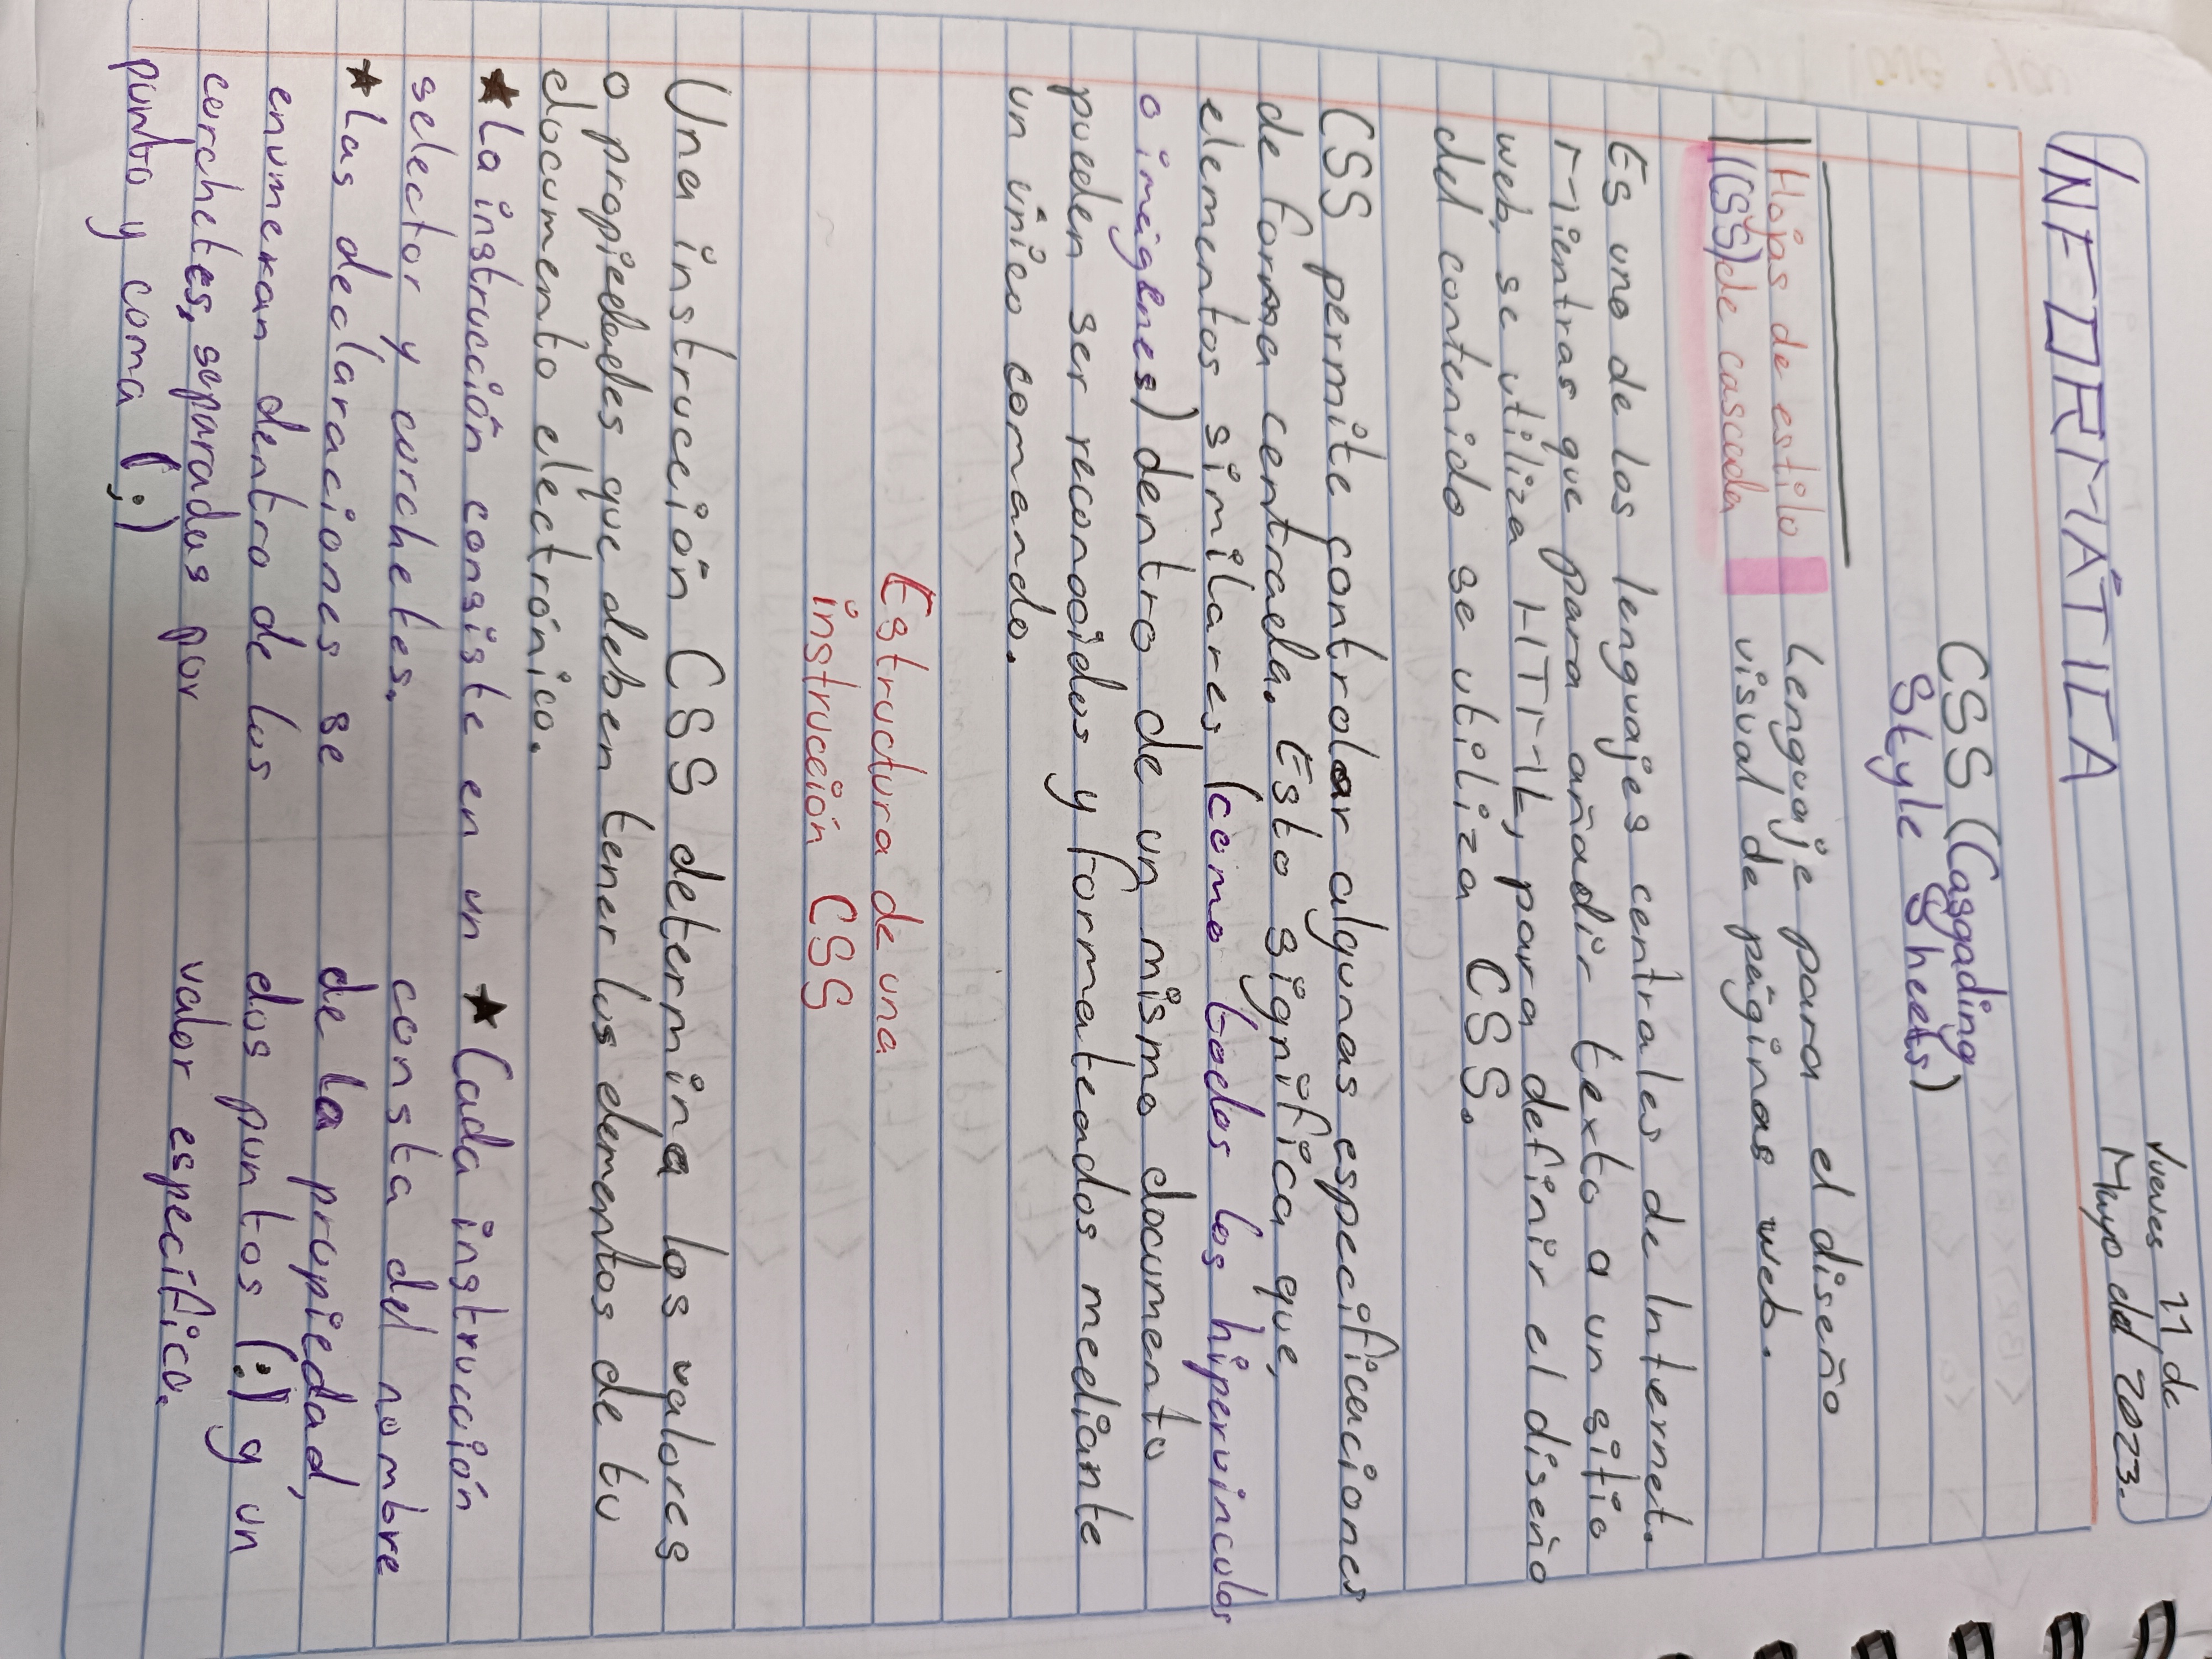 INFORMÁTICA
Jueves 11 de
Mayo del 2023.
CSS (Casgading
Style Sheets)
Hojas de estilo
(CSS) de cascada
Lenguaje para el diseño
visual de páginas web.
Es uno de los lenguajes centrales de Internet.
Mientras que para añadir texto a un sitio
web, se utiliza HTML, para definir el diseño
del contenido se utiliza CSS.
CSS permite controlar algunas especificaciones
de forma centrada. Esto significa que,
elementos similares (como todos los hipervinculos
o imágenes) dentro de un mismo documento
pueden ser reconocidos y formateados mediante
un único comando.
Estructura de una
instrucción CSS
Una instrucción CSS determina los valores
o propiedades que deben tener los elementos de tu
documento electrónico.
★ La instrucción consiste en un
selector y corchetes.
★ Las declaraciones se
enumeran dentro de los
corchetes, separadas por
punto y coma (;)
★ Cada instrucción
consta del nombre
de la propiedad,
dos puntos (:) y un
valor específico.